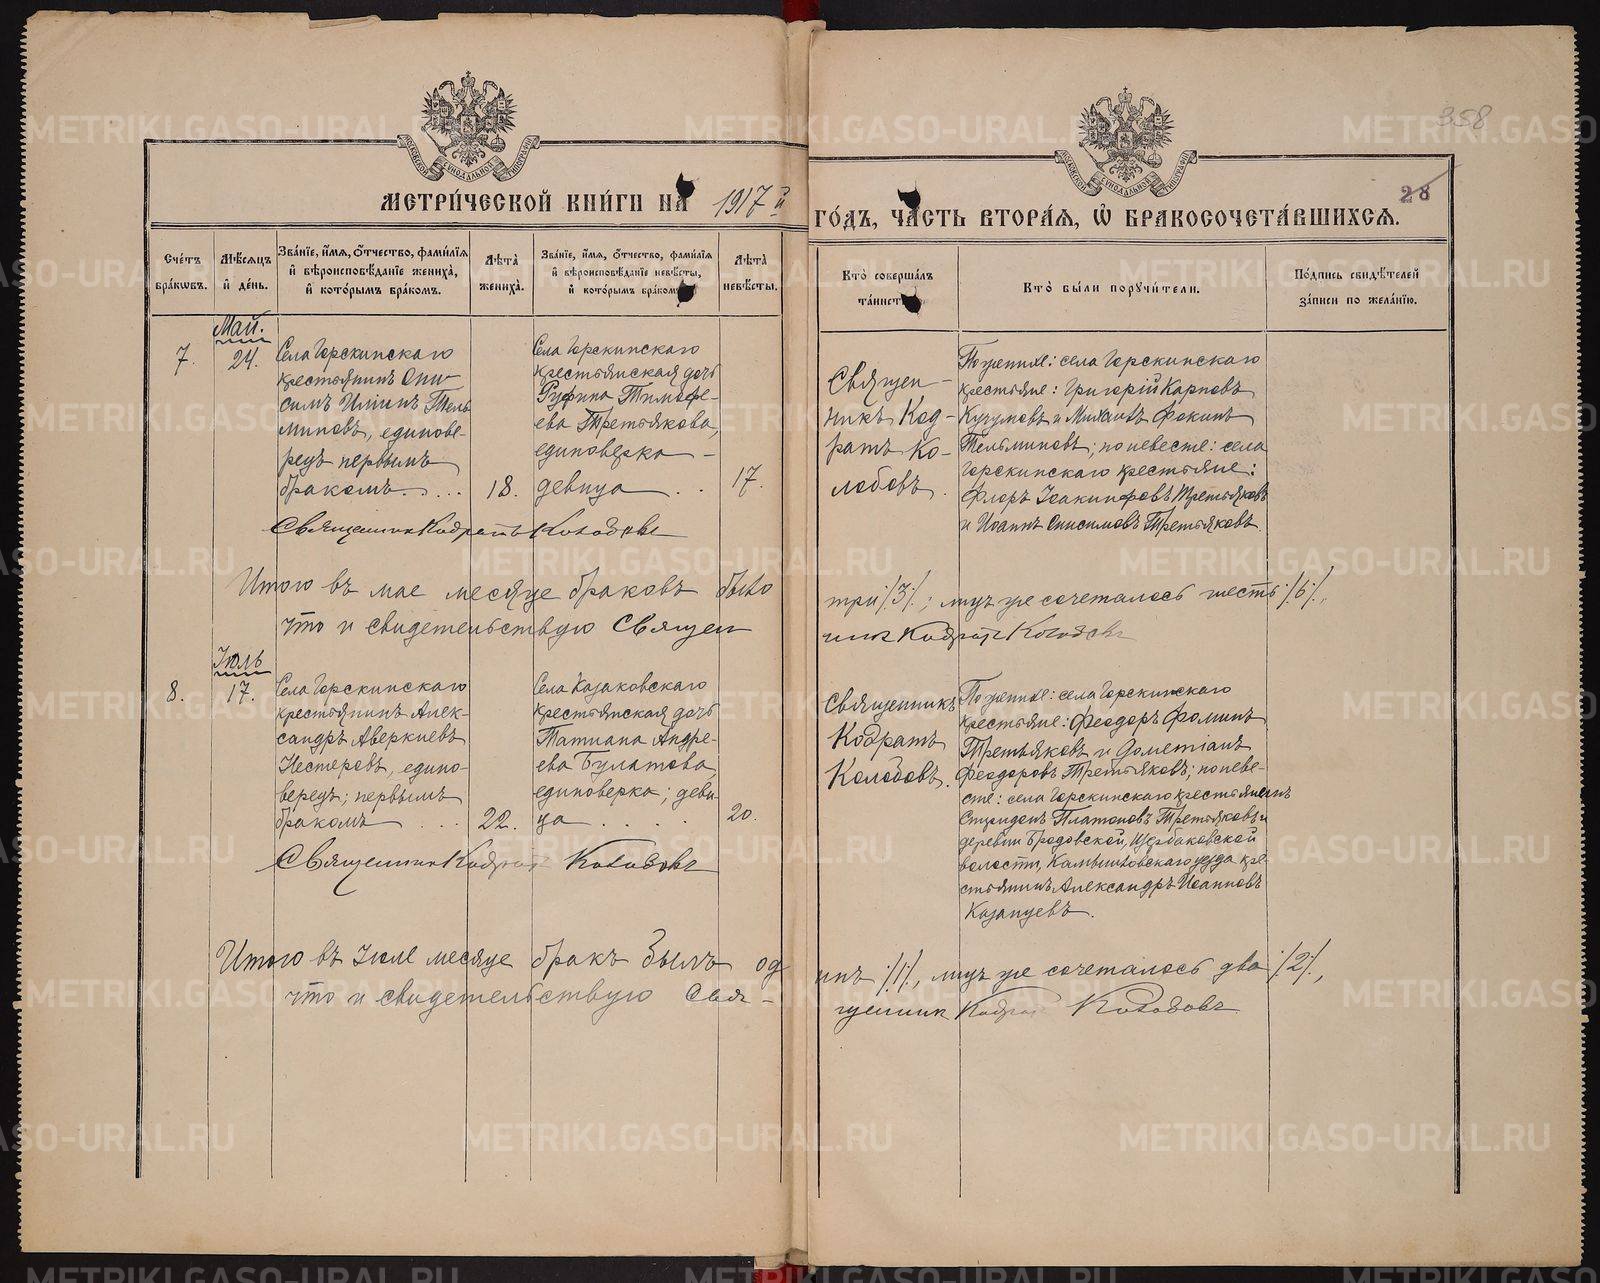 358
28
МЕТРИ́ЧЕСКОЙ КНИ́ГИ НА 1917 й ГО́ДЪ, ЧА́СТЬ ВТОРА́Я, Ѡ҆ БРАКОСОЧЕТА́ВШИХСѦ.
Сче́тъ бра́кѡвъ.
Мѣ́сѧцъ и҆ де́нь.
Зва́нїе, и҆́мѧ, ѻ҆́тчество, фами́лїѧ
и҆ вѣроисповѣ́данїе жениха̀,
и҆ кото́рымъ бра́комъ.
Лѣта̀ жениха̀.
Зва́нїе, и҆́мѧ, ѻ҆́тчество, фами́лїѧ
и҆ вѣроисповѣ́данїе невѣ́сты,
и҆ кото́рымъ бра́комъ
Лѣта̀ невѣ́сты.
Кто̀ соверша́лъ
та́инст
Кто̀ бы́ли порꙋчи́тели.
По́дпись свидѣ́телей
за́писи по жела́нїю.
Май.
7.
24.
Села Горскинскаго
крестьянинъ Они-
симъ Илiинъ Тель-
миновъ, единове-
рецъ первымъ
бракомъ. . . . .
18.
Села Горскинскаго
крестьянская дочь
Руфина Тимофе-
ева Третьякова,
единоверка -
девица . .
17.
Священ-
никъ Код-
ратъ Ко-
лобовъ.
По женихе: села Горскинскаго
крестьяне: Григорiй Карповъ
Кучумовъ и Михаилъ Фокинъ
Тельминовъ; по невесте: села
Горскинскаго крестьяне:
Флоръ Iоакинфовъ Третьяковъ
и Iоаннъ Онисимовъ Третьяковъ.
Священник Кодратъ Колобовъ
Итого въ мае месяце браковъ было три /3/, лицъ же сочеталось шесть /6/,
что и свидетельствую Священник Кодратъ Колобовъ
Iюль
8.
17.
Села Горскинскаго
крестьянинъ Алек-
сандръ Аверкиевъ
Нестеровъ, едино-
верецъ; первымъ
бракомъ . . .
22.
Села Казаковскаго
крестьянская дочь
Татиана Андре-
ева Булатова,
единоверка; деви-
ца . . . .
20.
Священникъ
Кодратъ
Колобовъ.
По женихе: села Горскинскаго
крестьяне: Феодоръ Фоминъ
Третьяковъ и Дометiанъ
Феодоровъ Третьяковъ; по неве-
сте: села Горскинскаго крестьянинъ
Спиридонъ Платоновъ Третьяковъ и
деревни Бродовской, Щербаковской
волости, Камышловскаго уезда кре-
стьянинъ Александръ Iоанновъ
Казанцевъ.
Священник Кодрат Колобовъ
Итого въ Iюле месяце бракъ былъ один /1/, лицъ же сочеталось два /2/,
что и свидетельствую Свя-щенник Кодрат Колобовъ
METRIKI.GASO-URAL.RU